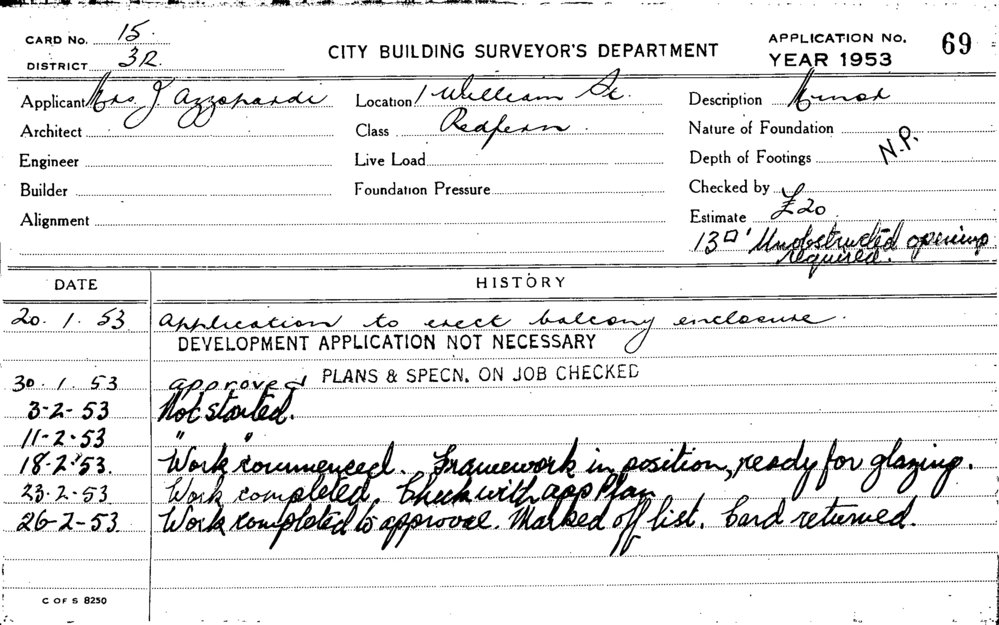 CARD No. 15.
DISTRICT 3R.
CITY BUILDING SURVEYOR'S DEPARTMENT
APPLICATION No. 69
YEAR 1953
Applicant Mrs. J Azzopardi
Location 1 William St.
Description Minor
Architect
Class Redfern
Nature of Foundation
Engineer
Live Load
Depth of Footings
N.P.
Builder
Foundation Pressure
Checked by
Alignment
Estimate £20
13□' Unobstructed opening
required.
DATE HISTORY
20. 1. 53 Application to erect balcony enclosure.
DEVELOPMENT APPLICATION NOT NECESSARY
30. 1. 53 approved PLANS & SPECN. ON JOB CHECKED
3-2-53 Not started.
11-2-53 " "
18-2-53. Work commenced. Framework in position, ready for glazing.
23-2-53 Work completed. Check with app Plan
26-2-53. Work completed to approval. Marked off list. Card returned.
C OF S 8250